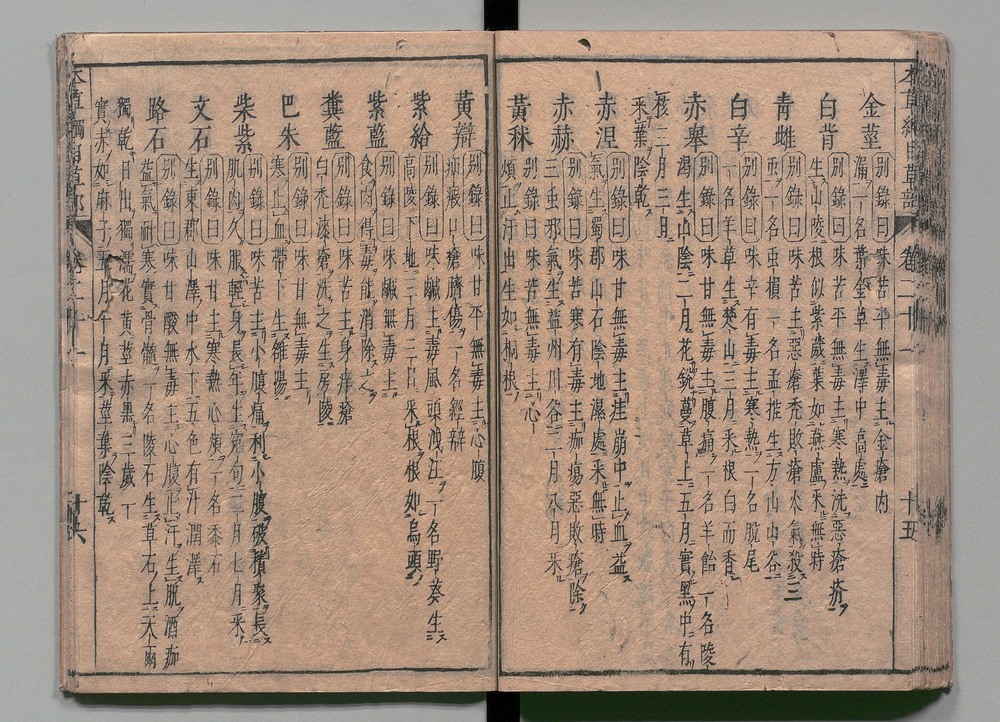 金莖
别錄曰味苦平無毒主金瘡内
漏一名葉金草生澤中高處
白背
别錄曰味苦平無毒主寒熱洗惡瘡疥
生山陵根似紫葳葉如燕盧采無時
青雌
别錄曰味苦主惡瘡禿敗瘡火氣殺三
蟲一名蟲損一名孟推生方山山谷
白辛
别錄曰味辛有毒主寒熱一名脫尾
一名羊草生楚山三月采根白而香
赤舉
别錄曰味甘無毒主腹痛一名羊飴一名陵
渴生山陰二月花銳蔓草上五月實黑中有
核三月三日
采葉陰乾
赤涅
别錄曰味甘無毒主疰崩中止血益
氣生蜀郡山石陰地濕處采無時
赤赫
别錄曰味苦寒有毒主痂瘍惡敗瘡除
三虫邪氣生益州川谷二月八月采
黃秫
别錄曰味苦無毒主心
煩止汗出生如桐根
黃辯
别錄曰味甘平無毒主心腹
疝瘕口瘡臍傷一名經辯
紫給
别錄曰味鹹主毒風頭洩注一名野葵生
高陵下地三月三日采根根如烏頭
紫藍
别錄曰味鹹無毒主
食肉得毒能消除之
糞藍
别錄曰味苦主身痒瘡
白禿漆瘡洗之生房陵
巴朱
别錄曰味甘無毒主
寒止血帶下生雒陽
柴紫
别錄曰味苦主小腹痛利小腹破積聚長
肌肉久服輕身長年生寃句二月七月采
文石
别錄曰味甘主寒熱心煩一名黍石
生東郡山澤中水下五色有汁潤澤
路石
别錄曰味甘酸無毒主心腹止汗生肌酒痂
益氣耐寒實骨髓一名陵石生草石上天雨
獨乾日出獨濡花黃莖赤黑三歲一
實赤如麻子五月十月采莖葉陰乾
卷二十一
十五
十六